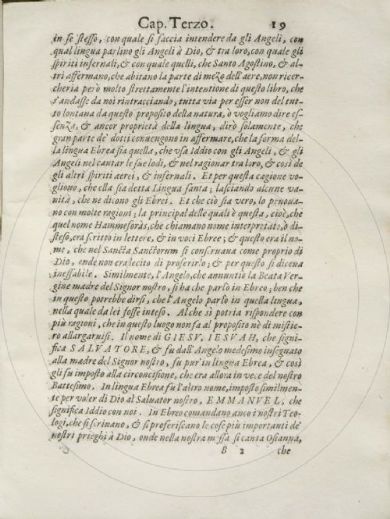 Cap. Terzo. 19
in se stesso, con quale si faccia intendere da gli Angeli, con
qual lingua parlino gli Angeli à Dio, & tra loro, con quale gli
spiriti infernali, & con quale quelli, che Santo Agostino, & al-
tri affermano, che abitano la parte di mezo dell'aere, non ricer-
cheria però molto strettamente l'intentione di questo libro, che
s'andasse da noi rintracciando, tutta via per esser non del tut-
to lontana da questo proposito della natura, ò vogliamo dire es-
senza, & ancor proprietà della lingua, dirò solamente, che
gran parte de' dotti conuengono in affermare, che la forma del-
la lingua Ebrea sia quella, che vsa Iddio con gli Angeli, & gli
Angeli nel cantar le sue lodi, & nel ragionar tra loro, & così de
gli altri spiriti aerei, & infernali. Et per questa cagione vo-
gliono, che ella sia detta Lingua santa; lasciando alcune va-
nità, che ne dicono gli Ebrei. Et che ciò sia vero, lo prouua-
no con molte ragioni; la principal delle quali è questa, cioè, che
quel nome Hammeforàs, che chiamano nome interpretato, ò di-
steso, era scritto in lettere, & in voci Ebree; & questo era il no-
me, che nel Sancta Sanctorum si conseruaua come proprio di
Dio, onde non era lecito di proferirlo; & per questo si diceua
ineffabile. Similmente, l'Angelo, che annuntiò la Beata Ver-
gine madre del Signor nostro, si ha che parlò in Ebreo; ben che
in questo potrebbe dirsi, che l'Angelo parlò in quella lingua,
nella quale da lei fosse inteso. Al che si potria rispondere con
più ragioni, che in questo luogo non fa al proposito nè di mistie-
ro allargaruisi. Il nome di GIESV, IESVAH, che signi-
fica SALVATORE, & fu dall'Angelo medesimo insegnato
alla madre del Signor nostro, fu pur in lingua Ebrea, & così
gli fu imposto alla circoncisione, che era allora in vece del nostro
Battesimo. In lingua Ebrea fu l'altro nome, imposto similmen-
te per voler di Dio al Saluator nostro, EMMANVEL, che
significa Iddio con noi. In Ebreo comandano anco i nostri Teo-
logi, che si scriuano, & si proferiscano le cose più importanti de'
nostri prieghi à Dio, onde nella nostra messa si canta Osianna,
B 2 che